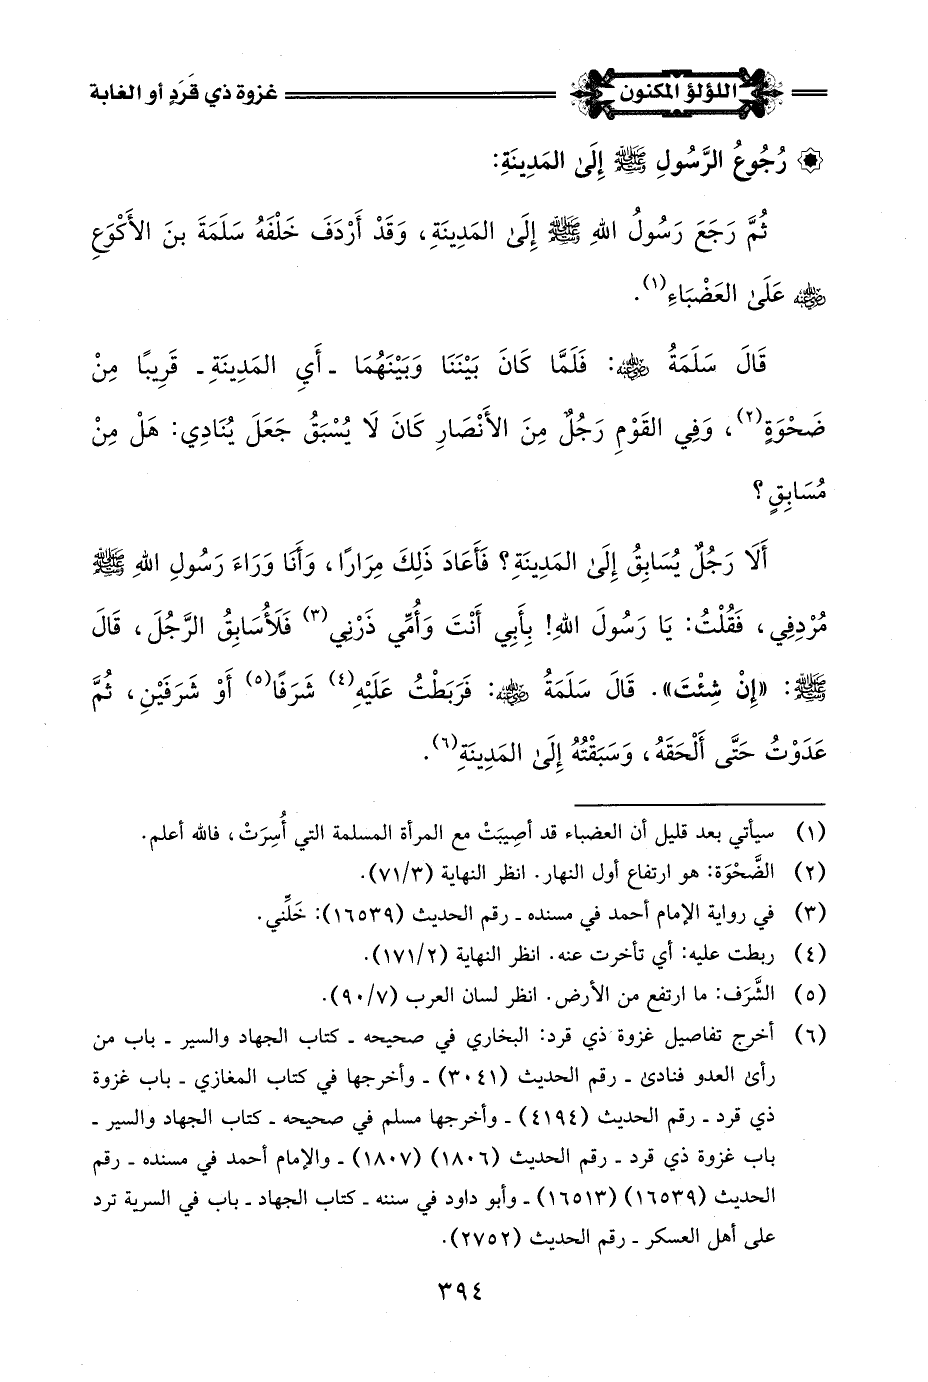 اللؤلؤ المكنون
غزوة ذي قَرَدٍ أو الغابة
رُجُوعُ الرَّسُولِ ﷺ إِلَىٰ المَدِينَةِ:
ثُمَّ رَجَعَ رَسُولُ اللهِ ﷺ إِلَىٰ المَدِينَةِ، وَقَدْ أَرْدَفَ خَلْفَهُ سَلَمَةَ بنَ الأَكْوَعِ
رضي الله عنه عَلَىٰ العَضْبَاءِ(١).
قَالَ سَلَمَةُ رضي الله عنه: فَلَمَّا كَانَ بَيْنَنَا وَبَيْنَهُمَا ـ أَيِ المَدِينَةِ ـ قَرِيبًا مِنْ
ضَحْوَةٍ(٢)، وَفِي القَوْمِ رَجُلٌ مِنَ الأَنْصَارِ كَانَ لَا يُسْبَقُ جَعَلَ يُنَادِي: هَلْ مِنْ
مُسَابِقٍ؟
أَلَا رَجُلٌ يُسَابِقُ إِلَىٰ المَدِينَةِ؟ فَأَعَادَ ذَلِكَ مِرَارًا، وَأَنَا وَرَاءَ رَسُولِ اللهِ ﷺ
مُرْدِفِي، فَقُلْتُ: يَا رَسُولَ اللهِ! بِأَبِي أَنْتَ وَأُمِّي ذَرْنِي(٣) فَلَأُسَابِقُ الرَّجُلَ، قَالَ
ﷺ: «إِنْ شِئْتَ». قَالَ سَلَمَةُ رضي الله عنه: فَرَبَطْتُ عَلَيْهِ(٤) شَرَفًا(٥) أَوْ شَرَفَيْنِ، ثُمَّ
عَدَوْتُ حَتَّى أَلْحَقَهُ، وَسَبَقْتُهُ إِلَىٰ المَدِينَةِ(٦).
(١) سيأتي بعد قليل أن العضباء قد أصِيبَتْ مع المرأة المسلمة التي أُسِرَتْ، فالله أعلم.
(٢) الضَّحْوَة: هو ارتفاع أول النهار. انظر النهاية (٧١/٣).
(٣) في رواية الإمام أحمد في مسنده ـ رقم الحديث (١٦٥٣٩): خَلِّني.
(٤) ربطت عليه: أي تأخرت عنه. انظر النهاية (١٧١/٢).
(٥) الشَّرَف: ما ارتفع من الأرض. انظر لسان العرب (٩٠/٧).
(٦) أخرج تفاصيل غزوة ذي قرد: البخاري في صحيحه ـ كتاب الجهاد والسير ـ باب من
رأىٰ العدو فنادىٰ ـ رقم الحديث (٣٠٤١) ـ وأخرجها في كتاب المغازي ـ باب غزوة
ذي قرد ـ رقم الحديث (٤١٩٤) ـ وأخرجها مسلم في صحيحه ـ كتاب الجهاد والسير ـ
باب غزوة ذي قرد ـ رقم الحديث (١٨٠٦) (١٨٠٧) ـ والإمام أحمد في مسنده ـ رقم
الحديث (١٦٥٣٩) (١٦٥١٣) ـ وأبو داود في سننه ـ كتاب الجهاد ـ باب في السرية ترد
على أهل العسكر ـ رقم الحديث (٢٧٥٢).
٣٩٤